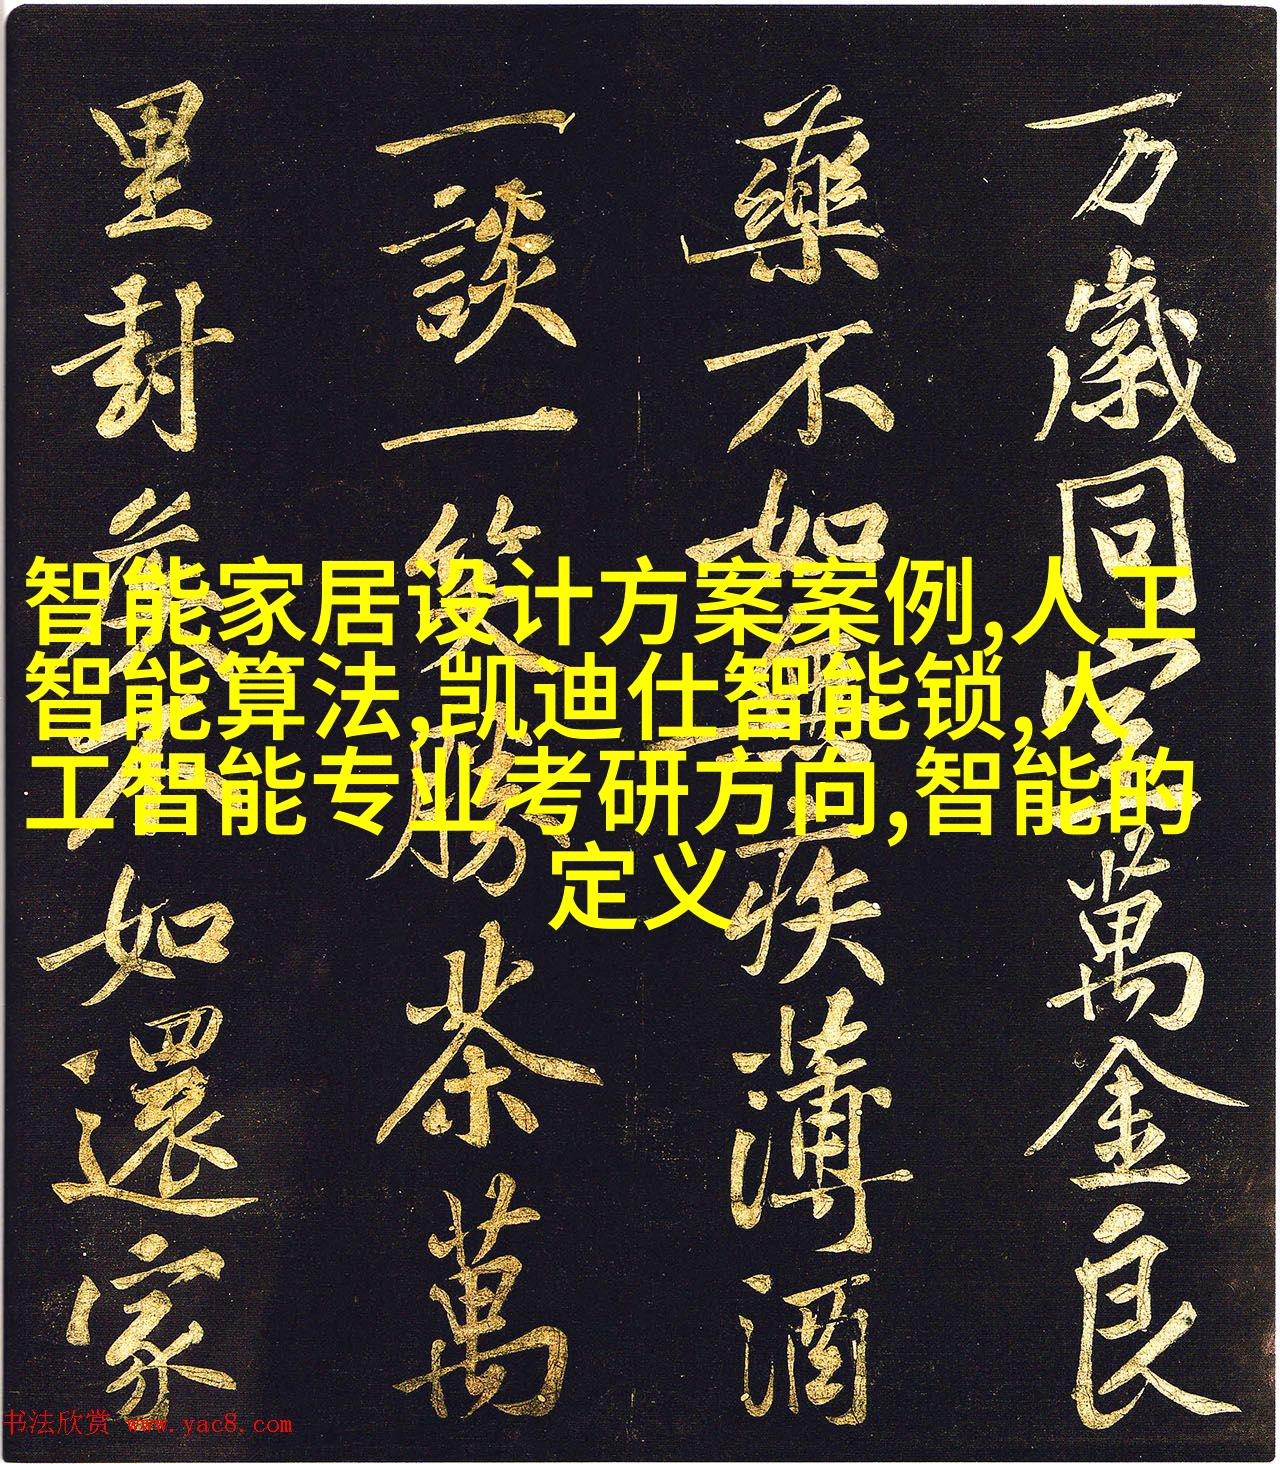 万歲同空萬金良
藥不如無疾薄酒
一談一笑勝茶萬
里封侯不如還家
智能家居设计方案案例,人工
智能算法,凯迪仕智能锁,人
工智能专业考研方向,智能的
定义
书法欣赏 www.yac8.com